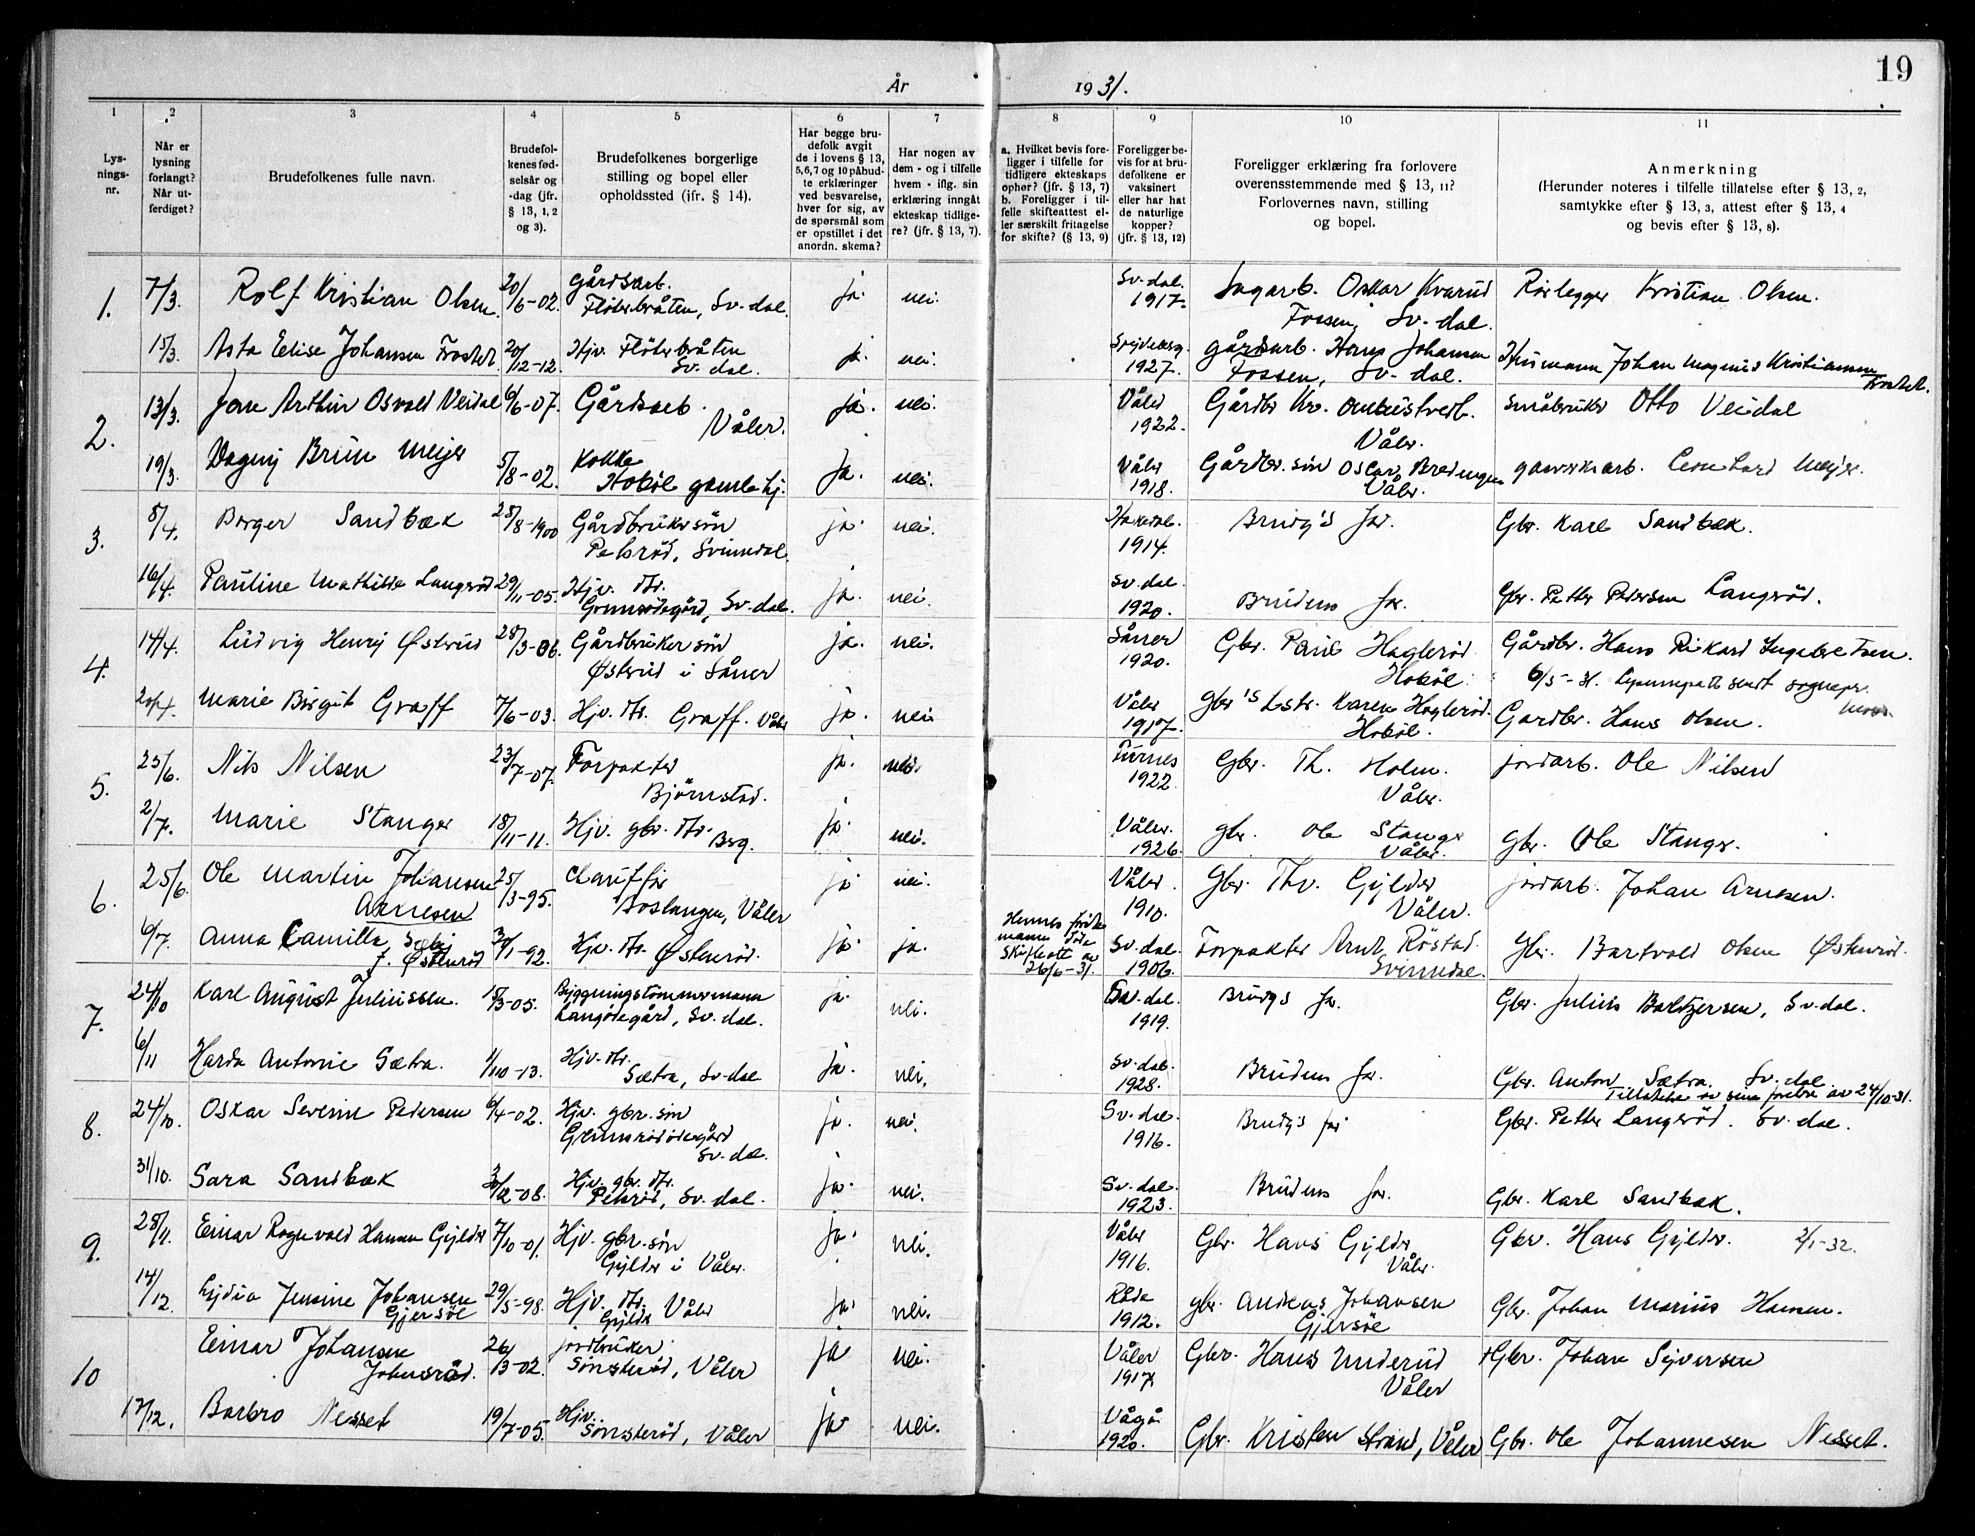 19
År 1931.
1 2 3 4 5 6 7 8 9 10 11
Lysningsnr.
Når er lysning forlangt? Når utferdiget?
Brudefolkenes fulle navn.
Brudefolkenes fødselsår og -dag (jfr. § 13, 1, 2 og 3).
Brudefolkenes borgerlige stilling og bopel eller opholdssted (jfr. § 14).
Har begge brudefolk avgit de i lovens § 13, 5, 6, 7 og 10 påbudte erklæringer ved besvarelse, hver for sig, av de spørsmål som er opstillet i det anordn. skema?
Har nogen av dem - og i tilfelle hvem - iflg. sin erklæring inngått ekteskap tidligere? (jfr. § 13, 7).
a. Hvilket bevis foreligger i tilfelle for tidligere ekteskaps ophør? (jfr. § 13, 7) b. Foreligger i tilfelle skifteattest eller særskilt fritagelse for skifte? (§ 13, 9)
Foreligger bevis for at brudefolkene er vaksinert eller har hat de naturlige kopper? (jfr. § 13, 12)
Foreligger erklæring fra forlovere overensstemmende med § 13, 11? Forlovernes navn, stilling og bopel.
Anmerkning (Herunder noteres i tilfelle tillatelse efter § 13, 2, samtykke efter § 13, 3, attest efter § 13, 4 og bevis efter § 13, 8).
1. 7/3. Rolf Kristian Olsen. 20/6-02. gårdsarb. Fløterbråten, Sv-dal. ja. nei. Sv-dal. 1917. Sagarb. Oskar Kvarud Fossen, Sv-dal. Rørlegger Kristian Olsen.
15/3. Asta Elise Johansen 20/12-12. Hjv. Fløterbråten Sv. dal. ja. nei. 1927. gårdsarb. Hans Johansen Fossen, Sv-dal. Johan Magnus Kristiansen
2. 13/3. Arthur Osvald Veidal 6/6-07. Gårdsarb. Våler. ja. nei. Våler 1922. Gårdbr Kr. Våler. småbruker Otto Veidal
19/3. Dagny Bruun Meyer 5/8-02. Kokke Hobøl gamle hj. ja. nei. Våler 1918. Gårdbr. søn Oscar Våler. Leonhard Meyer.
3. 8/4. Borger Sandbæk 25/8-1900 Gårdbrukersøn Pelsrød, Svinndal. ja. nei. Hakadal. 1914. Brudg's far. Gbr. Karl Sandbæk.
16/4. Pauline Mathilde Langsrød 29/11-05. Hjv. dtr. Grimsrødegård, Sv-dal. ja. nei. Sv-dal. 1920. Brudens far. Gbr. Petter Pedersen Langsrød.
4. 14/4. Ludvig Henry Østerud 28/3-06. Gårdbrukersøn Østerud i Såner ja. nei. Såner 1920. Gbr. Paul Haglerød Hobøl. Gårdbr. Hans Rikard
6/5-31. sendt sognepr.
Marie Birgit Graff 7/6-03. Hjv. dtr. Graff. Våler ja. nei Våler 1917. Gbr's Karen Haglerød. Hobøl. Gardbr. Hans Olsen.
5. 25/6. Nils Nilsen 23/7-07. Forpakter Bjørnstad. ja. nei. Furnes 1922. Gbr. Th. Holm. Våler. jordarb. Ole Nilsen
2/7. Marie Stanger 18/11-11. Hjv. gbr. dtr. Berg. ja. nei. Våler. 1926. gbr. Ole Stanger Våler. gbr. Ole Stanger.
6. 25/6. Ole Martin Johansen Arnesen 25/3-95. Chauffør Våler ja nei. Våler. 1910. Gbr. Thv. Gylder Våler. jordarb. Johan Arnesen.
6/7. Anna Camilla, Sæby f. Østenrød 1-92. Hjv. dtr. Østenrød. ja. ja. Hennes forrige mann døde Skifteatt av 26/6-31. Sv-dal. 1906. Forpakter Røstad. Svinndal. Gbr. Bartvald Olsen Østenrød.
7. 24/10 Karl August Juliussen. 3-05. Bygningstømmermann Sv-dal. ja. nei. Sv-dal. 1919. Brudgs far. Gbr. Julius Baltzersen, Sv-dal.
6/11 Harda Antonie Sætra. 1/10-13. Hjv. dtr. Sætra, Sv-dal ja. nei. Sv-dal. 1928. Brudens far. Gbr. Anton Sætra. Sv. dal. Tillatelse av sine foreldre av 24/10-31.
8. 24/10. Oskar Severin Pedersen 6/4-02. Hjv. gbr. søn Grimsrødødegård Sv-dal. ja. nei. Sv-dal. 1916. Brudg's far Gbr. Petter Langsrød. Sv-dal.
31/10. Sara Sandbæk 12-08. Hjv. gbr. dtr. Pelsrød, Sv. dal. ja. nei. Sv-dal. 1923. Brudens far. Gbr. Karl Sandbæk.
9. 28/11. Einar Ragnvald Hansen Gylder 7/10-01. Hjv. gbr. søn Gylder i Våler. ja. nei. Våler 1916. Gbr. Hans Gylder Våler. Gbr. Hans Gylder. 2/1-32.
14/12. Lydia Jensine Johansen Gjersøe 29/5-98. Hjv. dtr. Gylder Våler ja. nei. Råde 1912. gbr. Andreas Johansen Gjersøe Gbr. Johan Marius Hansen.
10 Einar Johansen Johnsrød. 26/3-02. jordbruker Sønsterød, Våler ja nei. Våler 1917 Gbr. Hans Underud Våler Gbr. Johan Syversen
17/12. Barbro Nesset 19/7-05. Hjv. Sønsterød, Våler ja nei. Vågå 1920. Gbr. Kristen Strand, Våler Gbr. Ole Johannesen Nesset.